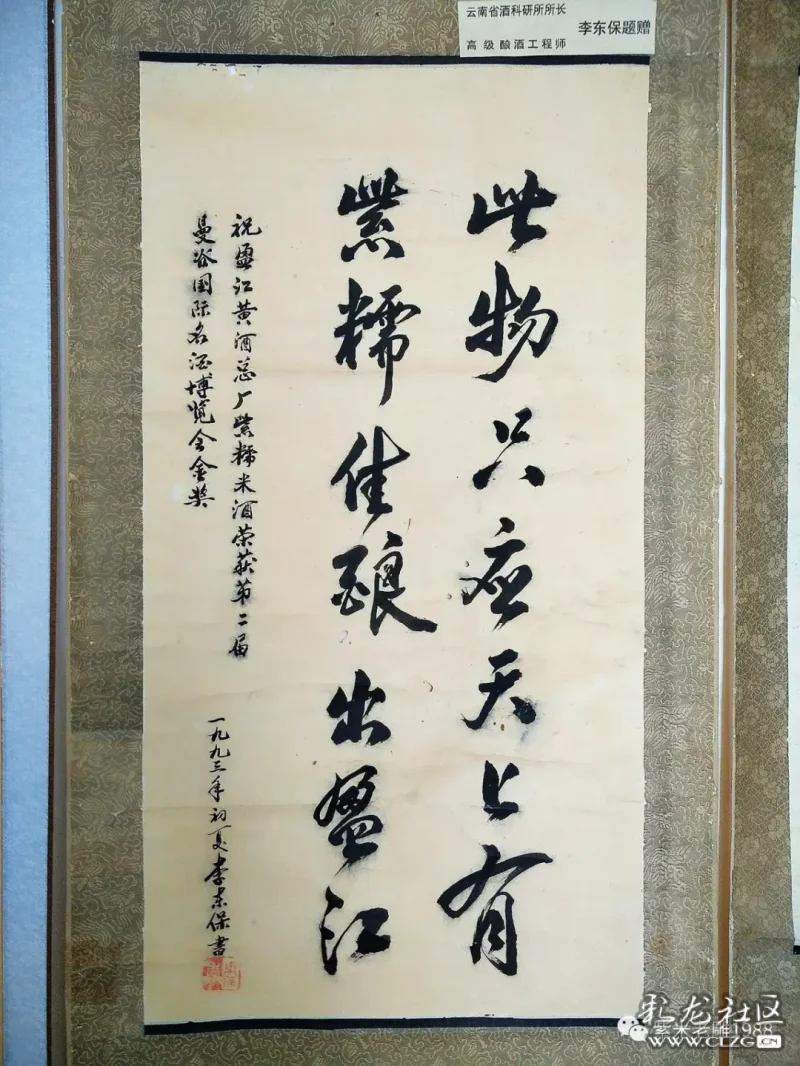 云南省酒科研所所长
高级酿酒工程师
李东保题赠
此物只应天上有
紫糯佳酿出盈江
祝盈江黄酒总厂紫糯米酒荣获第二届
曼谷国际名酒博览会金奖
一九九三年初夏李东保書
紫米老雕1988
乳龙社区
WWW.CLZG.CN